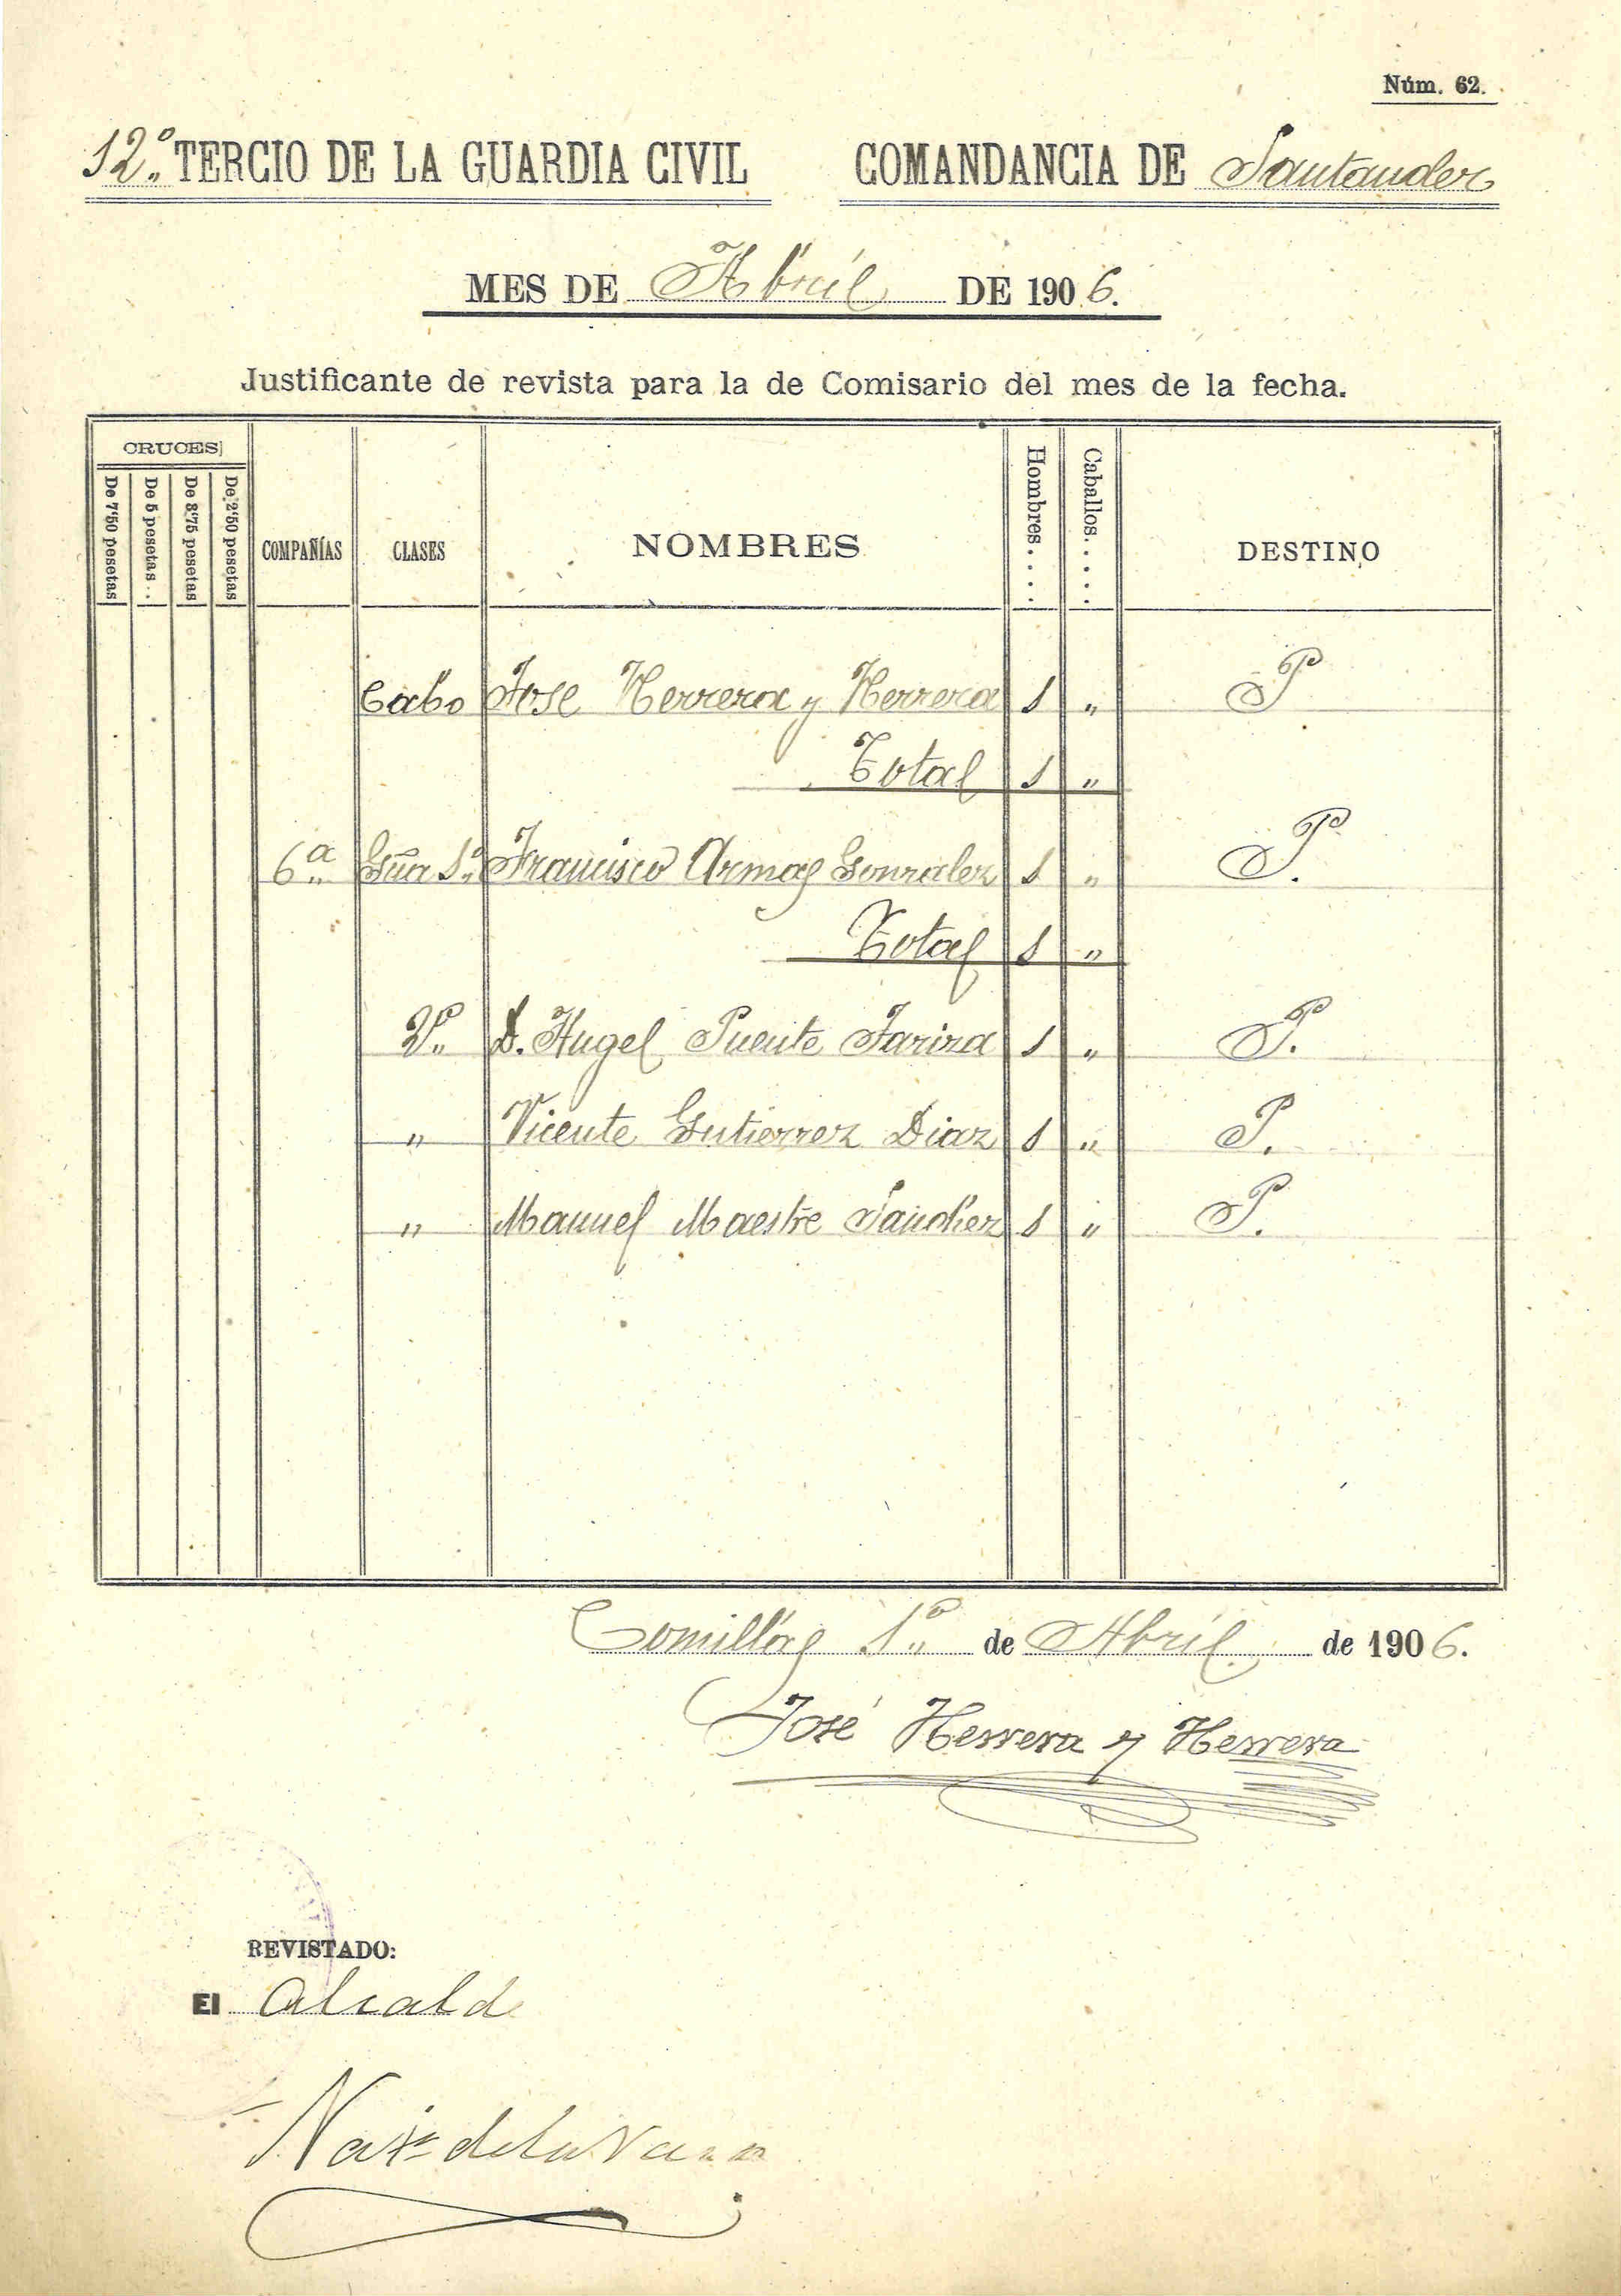 Núm. 62.
12º TERCIO DE LA GUARDIA CIVIL COMANDANCIA DE Santander
MES DE Abril DE 1906.
Justificante de revista para la de Comisario del mes de la fecha.
CRUCES
De 7'50 pesetas
De 5 pesetas . .
De 3'75 pesetas
De 2'50 pesetas
COMPAÑÍAS
CLASES
NOMBRES
Hombres. . . .
Caballos. . . . .
DESTINO
Cabo Jose Herrera y Herrera 1 " P
Total 1 "
6ª Gua 1º Francisco Armas Gonzalez 1 " P.
Total 1 "
2º D. Angel Puente Fariza 1 " P.
" Vicente Gutierrez Diaz 1 " P.
" Manuel Maestre Sanchez 1 " P.
Comillas 1º de Abril de 1906.
José Herrera y Herrera
REVISTADO:
El Alcalde
de la